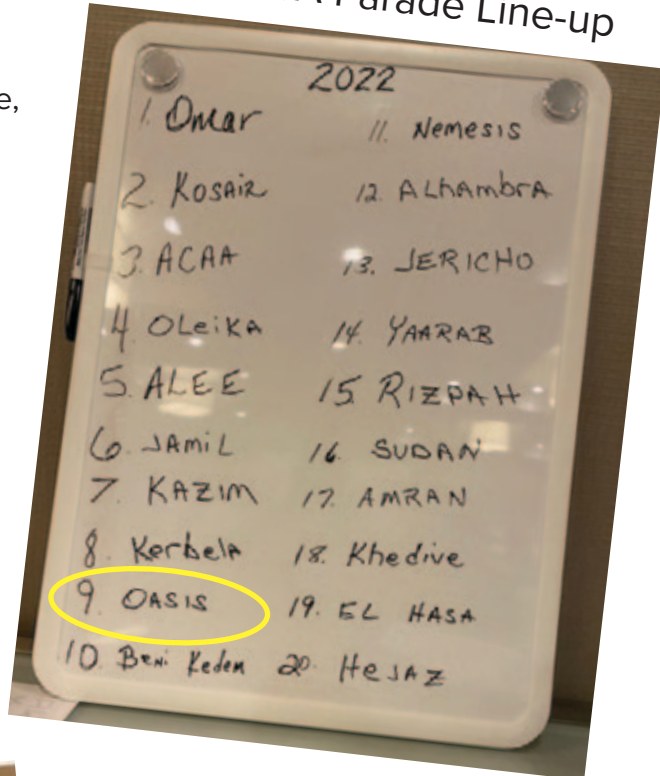 A Parade Line-up
e,
2022
1. Omar
2. KOSAIR
3. ACAA
4 OLeiKA
5. ALEE
6. JAMiL
7. KAZIM
8. Kerbela
9. OASIS
10. Beni Kedem
11. Nemesis
12. ALhambRA
13. JERICHO
14. YAARAB
15. RIZPAH
16. SUDAN
17. AMRAN
18. Khedive
19. EL HASA
20. HeJAZ